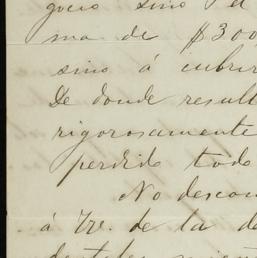 sino
ma de $300
sino á cubrir
De donde result
rigorosamente
perdido todo
No descon
á Vr. de la de